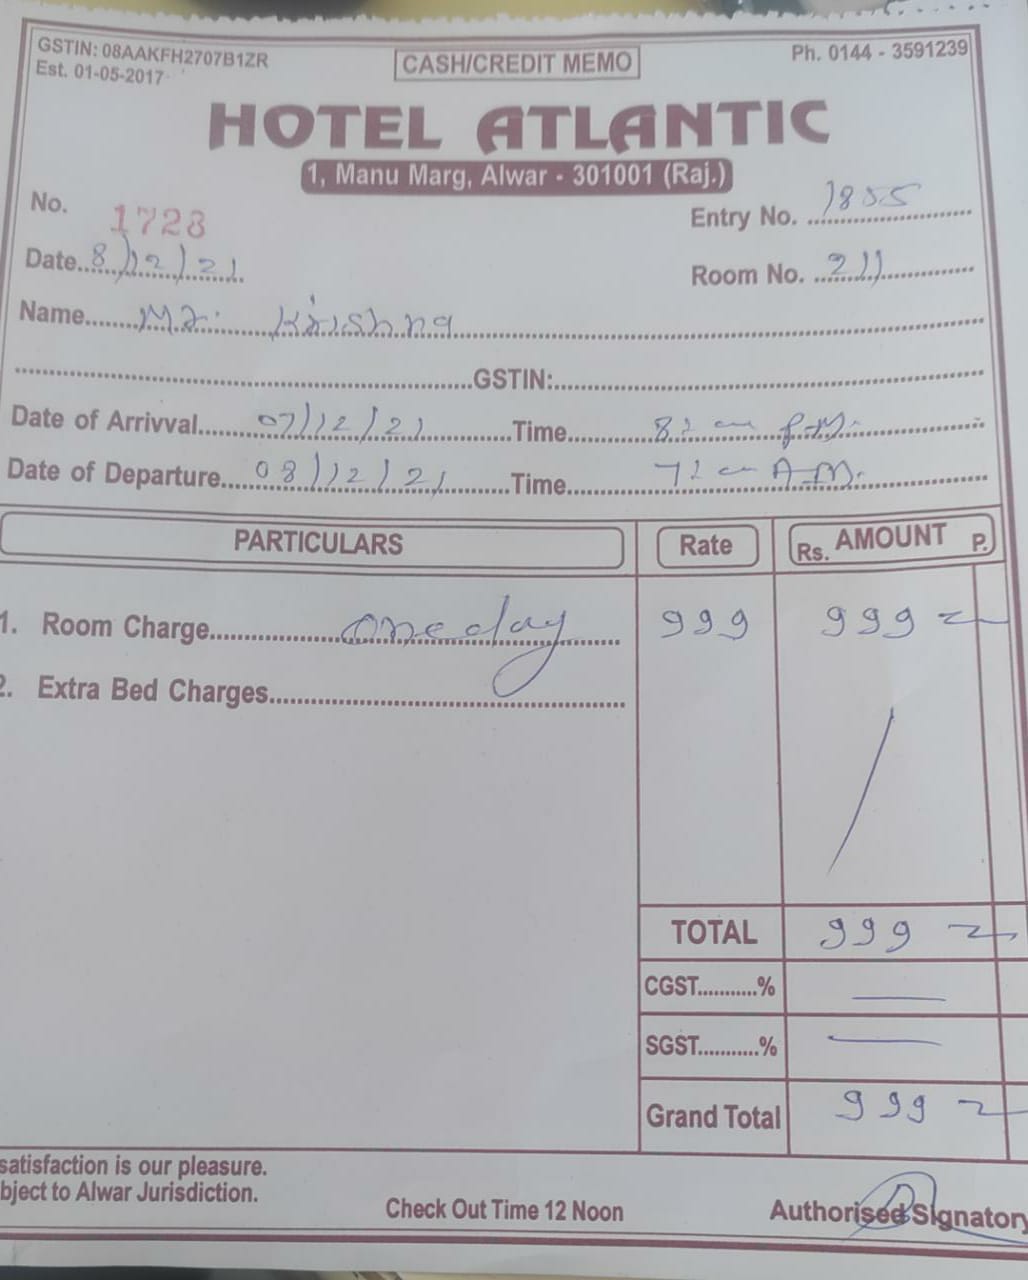 GSTIN: 08AAKFH2707B1ZR
Est. 01-05-2017
CASH/CREDIT MEMO
Ph. 0144 - 3591239
HOTEL ATLANTIC
1, Manu Marg, Alwar - 301001 (Raj.)
No. 1728
Entry No. 1855
Date 8/12/21
Room No. 211
Name Mr. Krishna
GSTIN:
Date of Arrivval 07/12/21 Time P.M.
Date of Departure 08/12/21 Time A.M.
PARTICULARS Rate Rs. AMOUNT P.
1. Room Charge one day 999 999
2. Extra Bed Charges
TOTAL 999
CGST...........%
SGST...........%
Grand Total 999
satisfaction is our pleasure.
bject to Alwar Jurisdiction.
Check Out Time 12 Noon
Authorised Signatory